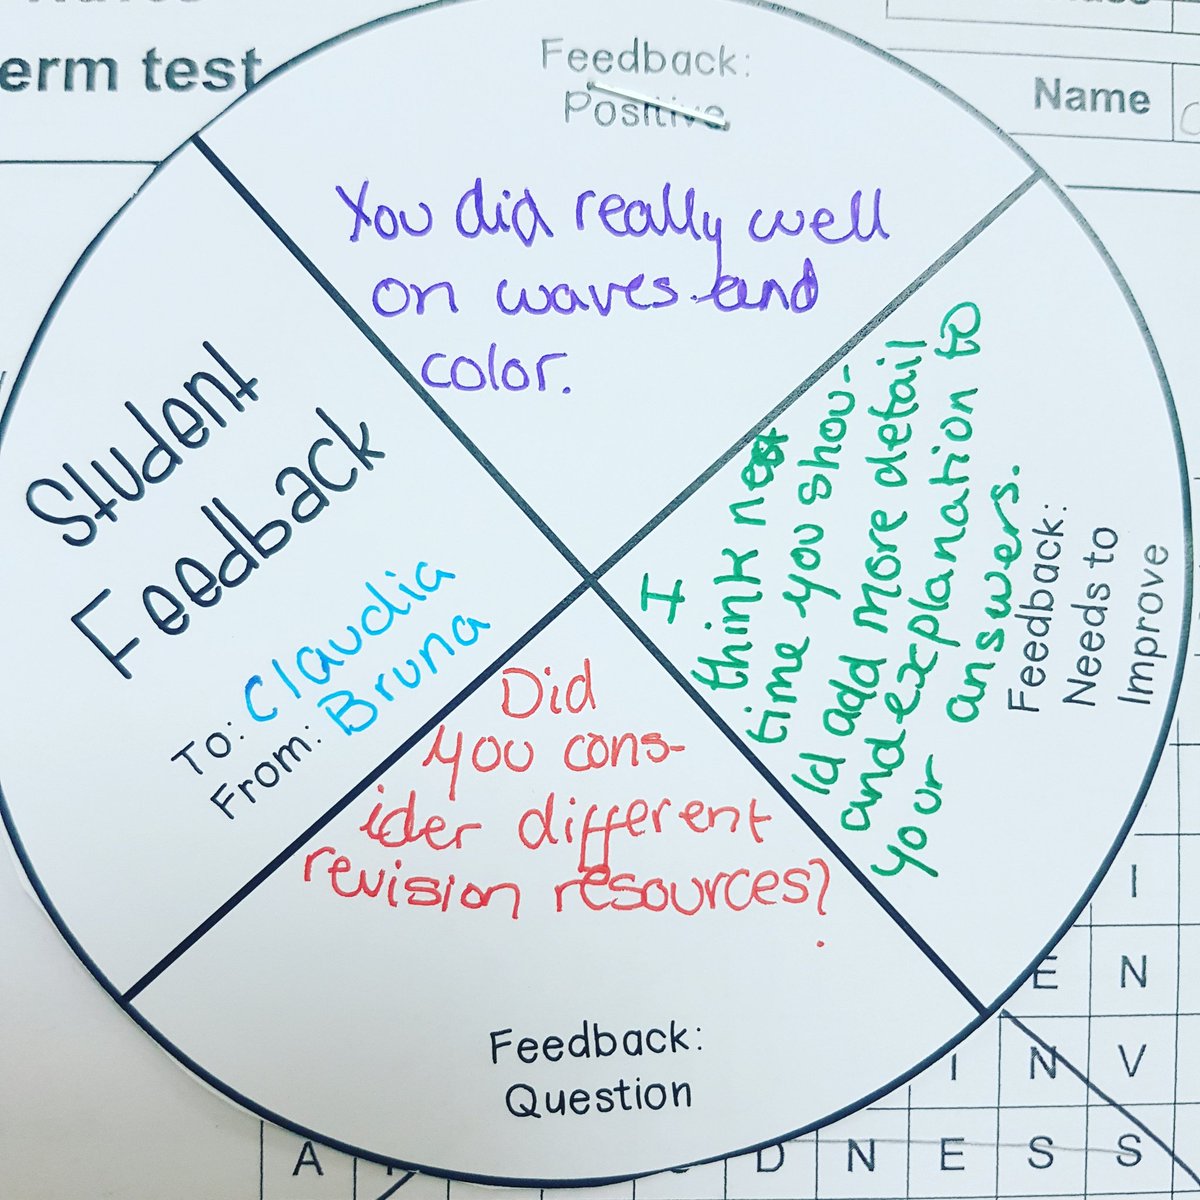 erm test
Name
Feedback:
Positive
You did really well
on waves and
color.
Student
Feedback
To: Claudia
From: Bruna
I
think next
time you shou-
ld add more detail
and explanation to
your answers.
Feedback:
Needs to
Improve
Did
you cons-
ider different
revision resources?
Feedback:
Question
I
E N
I N V
A D N E S S